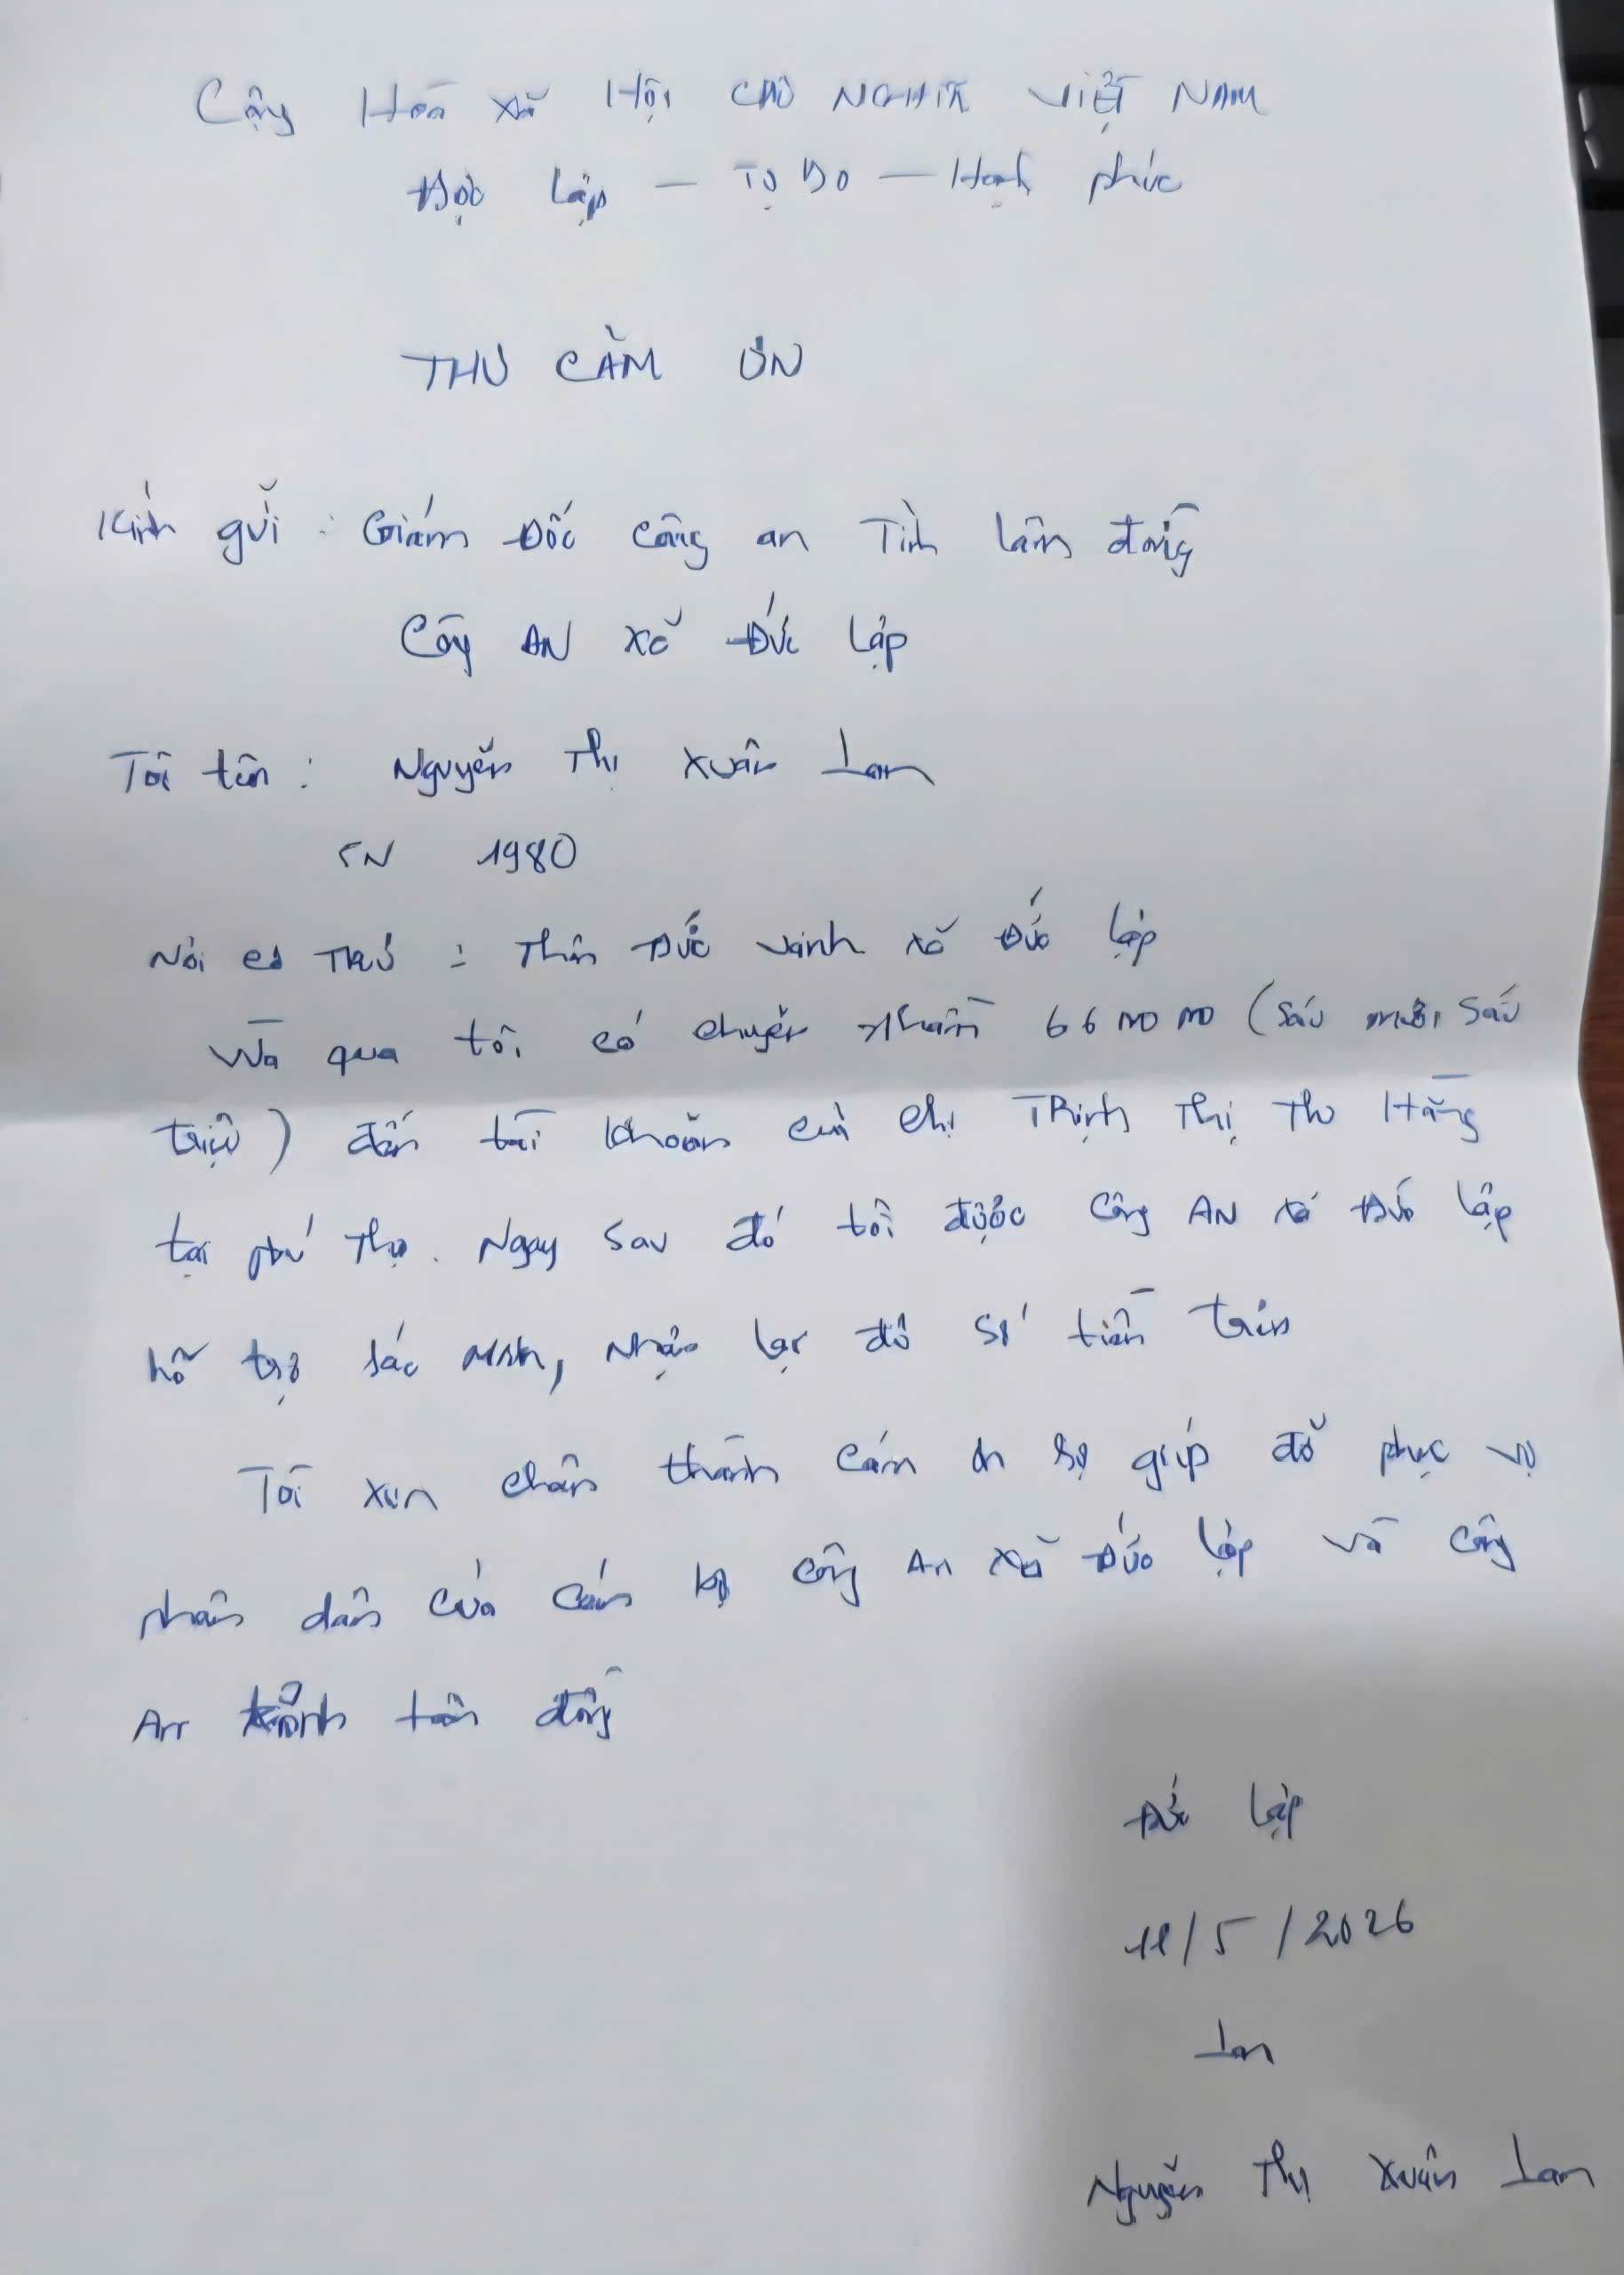 Cộng Hoà xã Hội CHỦ NGHĨA VIỆT NAM
Độc lập – Tự Do – Hạnh phúc
THƯ CẢM ƠN
Kính gửi : Giám Đốc Công an Tỉnh lâm đồng
Công AN xã Đức lập
Tôi tên : Nguyễn Thị Xuân Lan
SN 1980
Nơi cư TRÚ : Thôn Đức vinh xã Đức lập
Vừa qua tôi có chuyển nhầm 66 000 000 (sáu mươi sáu
triệu) đến tài khoản của chị TRịnh Thị Thu Hằng
tại phú Thọ. Ngay sau đó tôi được Công AN xã Đức lập
hỗ trợ sác minh, nhận lại đủ số tiền trên
Tôi xin chân thành cám ơn sự giúp đỡ phục vụ
nhân dân của cán bộ công An xã Đức lập và công
An tỉnh lâm đồng
Đức lập
11/5/2026
Lan
Nguyễn Thị Xuân Lan